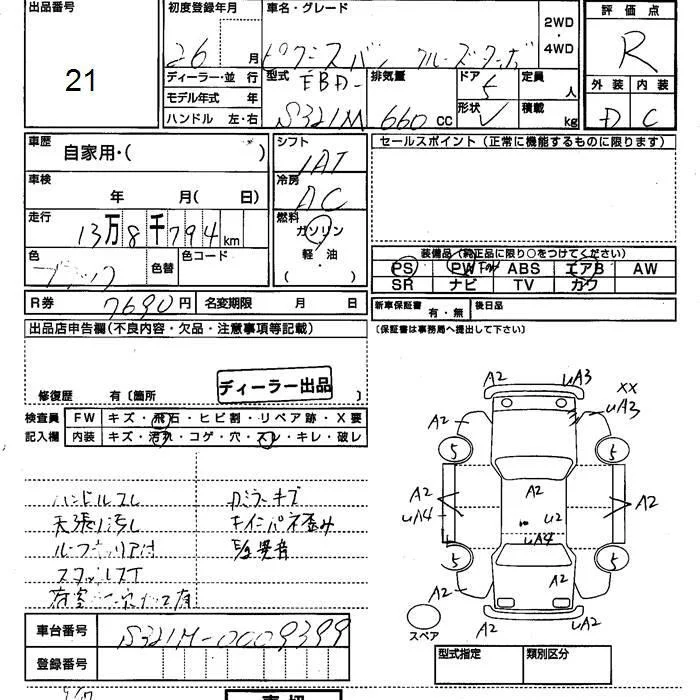 出品番号
21
初度登録年月
26 月
車名・グレード
ピクシスバン クルーズターボ
2WD
・
4WD
評価点
R
外装 内装
D C
ディーラー・並行
モデル年式 年
ハンドル 左・右
型式 EBD-
S321M
排気量
660 cc
ドア 5
形状 V
定員 人
積載 kg
車歴
自家用・( )
車検
年 月( 日)
走行
13万8千794km
色
ブラック
色替
色コード
シフト
IAT
冷房
AC
燃料
ガソリン
軽・油
( )
セールスポイント(正常に機能するものに限ります)
装備品(純正品に限り○をつけてください)
PS PW ABS エアB AW
SR ナビ TV カワ
R券 7690円 名変期限 月 日
新車保証書
有・無
後日品
(保証書は事務局へ提出して下さい)
出品店申告欄(不良内容・欠品・注意事項等記載)
修復歴 有〔箇所 〕
ディーラー出品
検査員
記入欄
FW キズ・飛石・ヒビ割・リペア跡・X要
内装 キズ・汚れ・コゲ・穴・スレ・キレ・破レ
ハンドルスレ
天張り汚し
ルーフキャリア付
スタッドレスT
Dミラーキズ
インパネ歪み
E/g異音
A2 uA3
XX
A2 uA3
5 5
A2 A2 A2
uA4 u2
uA4
5 5
A2 A2 A2
A2 uA2
スペア
車台番号 S321M-0009399
登録番号
型式指定 類別区分